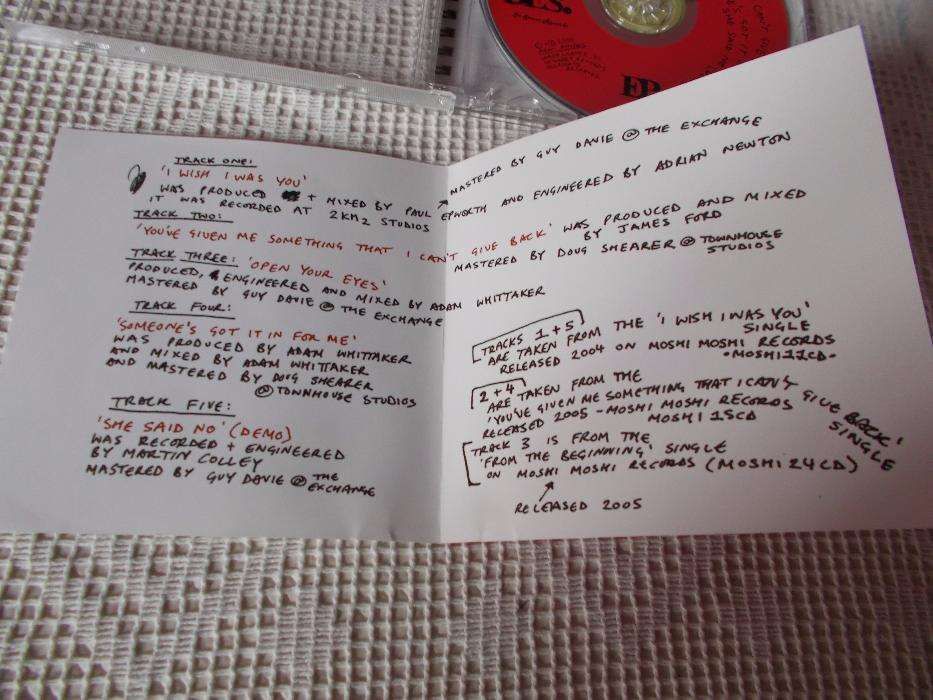 TRACK ONE:
'I WISH I WAS YOU'
WAS PRODUCED + MIXED BY PAUL EPWORTH AND ENGINEERED BY ADRIAN NEWTON
IT WAS RECORDED AT 2KM2 STUDIOS
MASTERED BY GUY DAVIE @ THE EXCHANGE
TRACK TWO:
'YOU'VE GIVEN ME SOMETHING THAT I CAN'T GIVE BACK' WAS PRODUCED AND MIXED
BY JAMES FORD
MASTERED BY DOUG SHEARER @ TOWNHOUSE
STUDIOS
TRACK THREE: 'OPEN YOUR EYES'
PRODUCED, ENGINEERED AND MIXED BY ADAM WHITTAKER
MASTERED BY GUY DAVIE @ THE EXCHANGE
TRACK FOUR:
'SOMEONE'S GOT IT IN FOR ME'
WAS PRODUCED BY ADAM WHITTAKER
AND MIXED BY ADAM WHITTAKER
AND MASTERED BY DOUG SHEARER
@ TOWNHOUSE STUDIOS
TRACK FIVE:
'SHE SAID NO' (DEMO)
WAS RECORDED + ENGINEERED
BY MARTIN COLLEY
MASTERED BY GUY DAVIE @ THE
EXCHANGE
TRACKS 1 + 5
ARE TAKEN FROM THE 'I WISH I WAS YOU'
SINGLE
RELEASED 2004 ON MOSHI MOSHI RECORDS
-MOSHI11CD-
2 + 4
ARE TAKEN FROM THE
'YOU'VE GIVEN ME SOMETHING THAT I CAN'T GIVE BACK'
SINGLE
RELEASED 2005 - MOSHI MOSHI RECORDS
MOSHI 15CD
TRACK 3 IS FROM THE
'FROM THE BEGINNING' SINGLE
ON MOSHI MOSHI RECORDS (MOSHI 24CD)
RELEASED 2005
EP